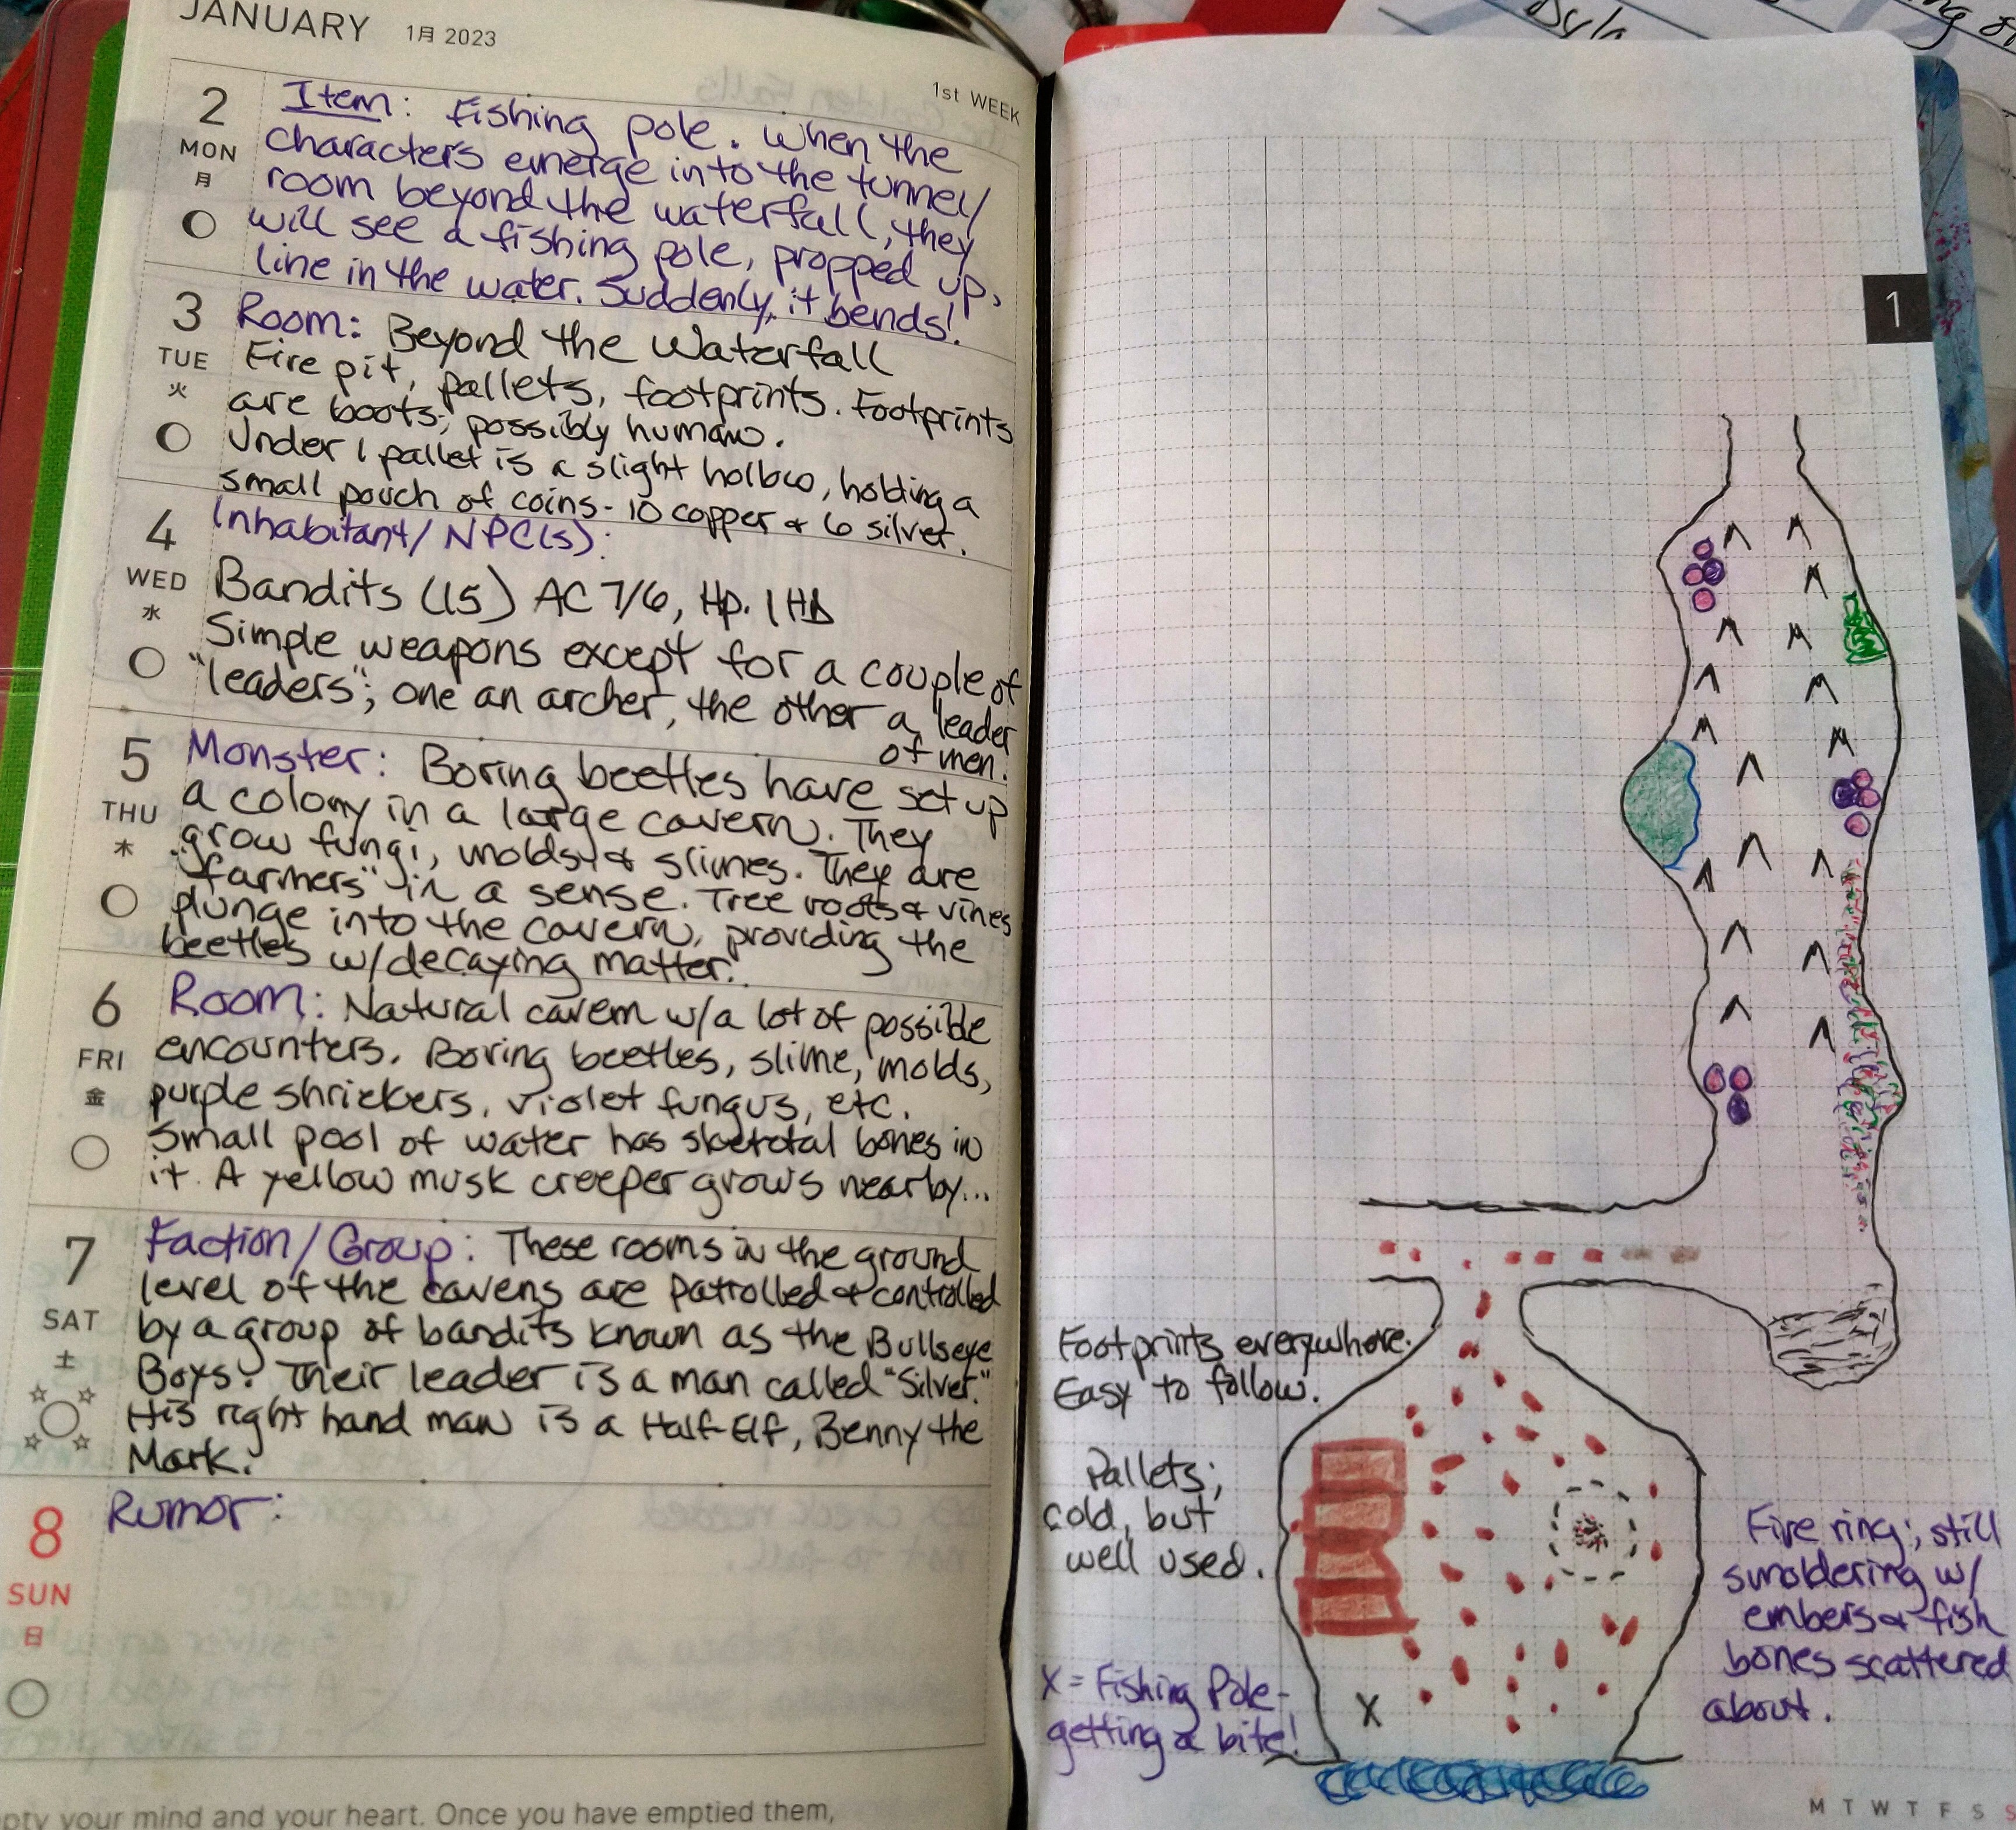 JANUARY 1月 2023
1st WEEK
2
MON
月
Item: Fishing pole. When the
characters emerge into the tunnel/
room beyond the waterfall, they
will see a fishing pole, propped up,
line in the water. Suddenly, it bends!
3
TUE
火
Room: Beyond the Waterfall
Fire pit, pallets, footprints. Footprints
are boots; possibly human.
Under 1 pallet is a slight hollow, holding a
small pouch of coins - 10 copper & 6 silver.
4
WED
水
Inhabitant/NPC(s):
Bandits (15) AC 7/6, Hp. 1 HD
Simple weapons except for a couple of
"leaders"; one an archer, the other a "leader
of men."
5
THU
木
Monster: Boring beetles have set up
a colony in a large cavern. They
grow fungi, molds, & slimes. They are
"farmers" in a sense. Tree roots & vines
plunge into the cavern, providing the
beetles w/decaying matter.
6
FRI
金
Room: Natural cavern w/a lot of possible
encounters. Boring beetles, slime, molds,
purple shriekers, violet fungus, etc.
Small pool of water has skeletal bones in
it. A yellow musk creeper grows nearby...
7
SAT
土
Faction/Group: These rooms in the ground
level of the cavens are patrolled & controlled
by a group of bandits known as the Bullseye
Boys. Their leader is a man called "Silver."
His right hand man is a Half-Elf, Benny the
Mark.
8
SUN
日
Rumor:
pty your mind and your heart. Once you have emptied them,
1
Footprints everywhere.
Easy to follow.
Pallets;
cold, but
well used.
Fire ring; still
smoldering w/
embers & fish
bones scattered
about.
X = Fishing Pole -
getting a bite!
X
M T W T F S S